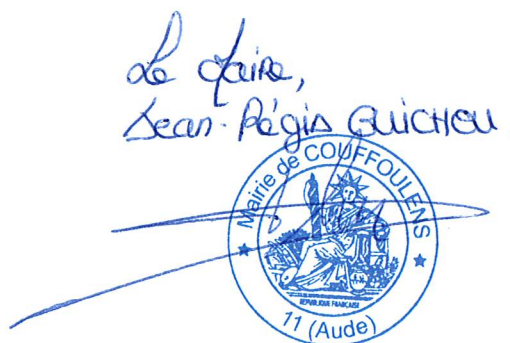 Le Maire,
Jean-Régis GUICHOU
Mairie de COUFFOULENS
RÉPUBLIQUE FRANÇAISE
11 (Aude)